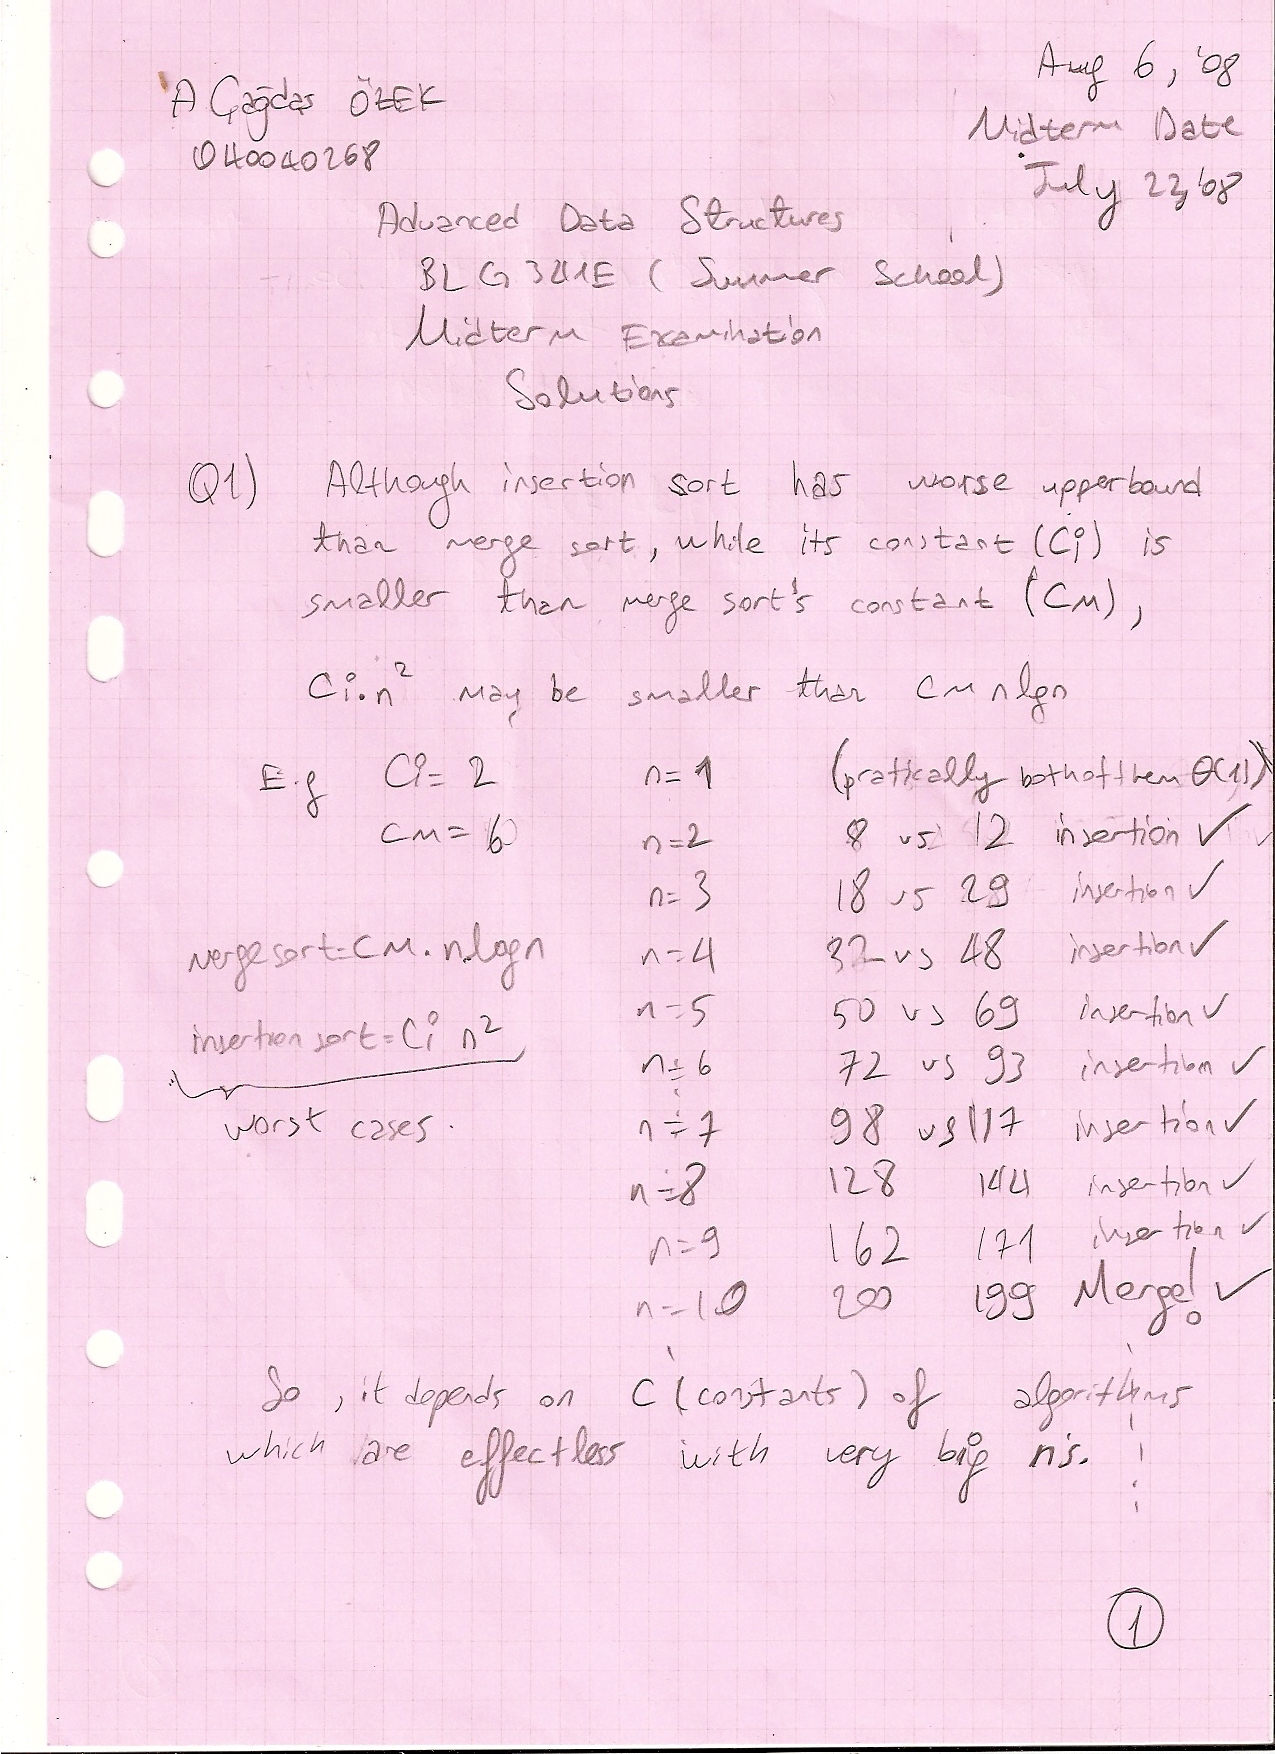 A Çağdaş ÖZEK
040040268
Aug 6, '08
Midterm Date
July 23, '08
Advanced Data Structures
BLG 341E (Summer School)
Midterm Examination
Solutions
Q1) Although insertion sort has worse upperbound
than merge sort, while its constant (Ci) is
smaller than merge sort's constant (CM),
Ci.n² may be smaller than CM nlgn
E.g Ci= 2 n= 1 (pratically both of them Θ(1))
CM= 6 n=2 8 vs 12 insertion ✓
n= 3 18 vs 29 insertion ✓
mergesort=CM.n.logn n=4 32 vs 48 insertion ✓
n=5 50 vs 69 insertion ✓
insertion sort=Ci n² n=6 72 vs 93 insertion ✓
worst cases. n=7 98 vs 117 insertion ✓
n=8 128 144 insertion ✓
n=9 162 171 insertion ✓
n=10 200 199 Merge! ✓
So, it depends on C (constants) of algorithms
which are effectless with very big n's.
1